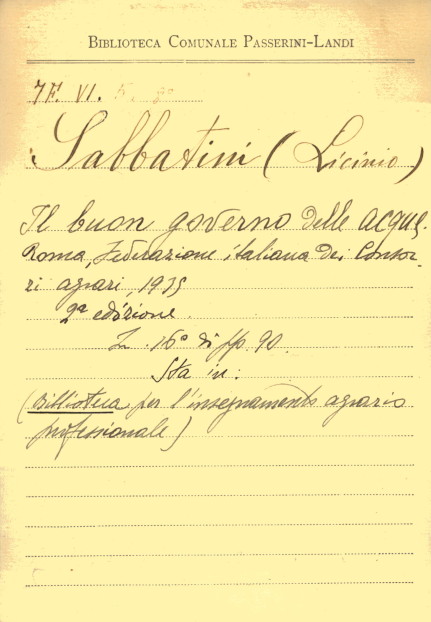 BIBLIOTECA COMUNALE PASSERINI-LANDI
7F. VI.
Sabbatini (Licinio)
Il buon governo delle acque.
Roma, Federazione italiana dei Consor-
zi agrari, 1935
2ª edizione.
In 16° di pp. 90.
Sta in:
(Biblioteca per l'insegnamento agrario
professionale)